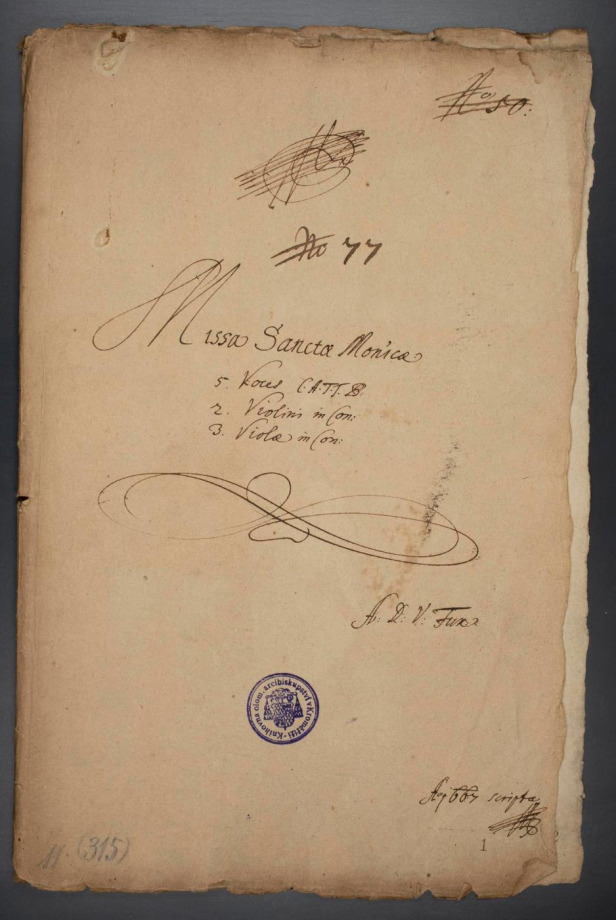 No 50:
No 77
Missa Sanctæ Monicæ
5. Voces C.A.T.T.B.
2. Violini in Con:
3. Violæ in Con:
A: D: V: Fux
Aō 1667 scripta
1
(315)
Knihovna olom. arcibiskupství v Kroměříži